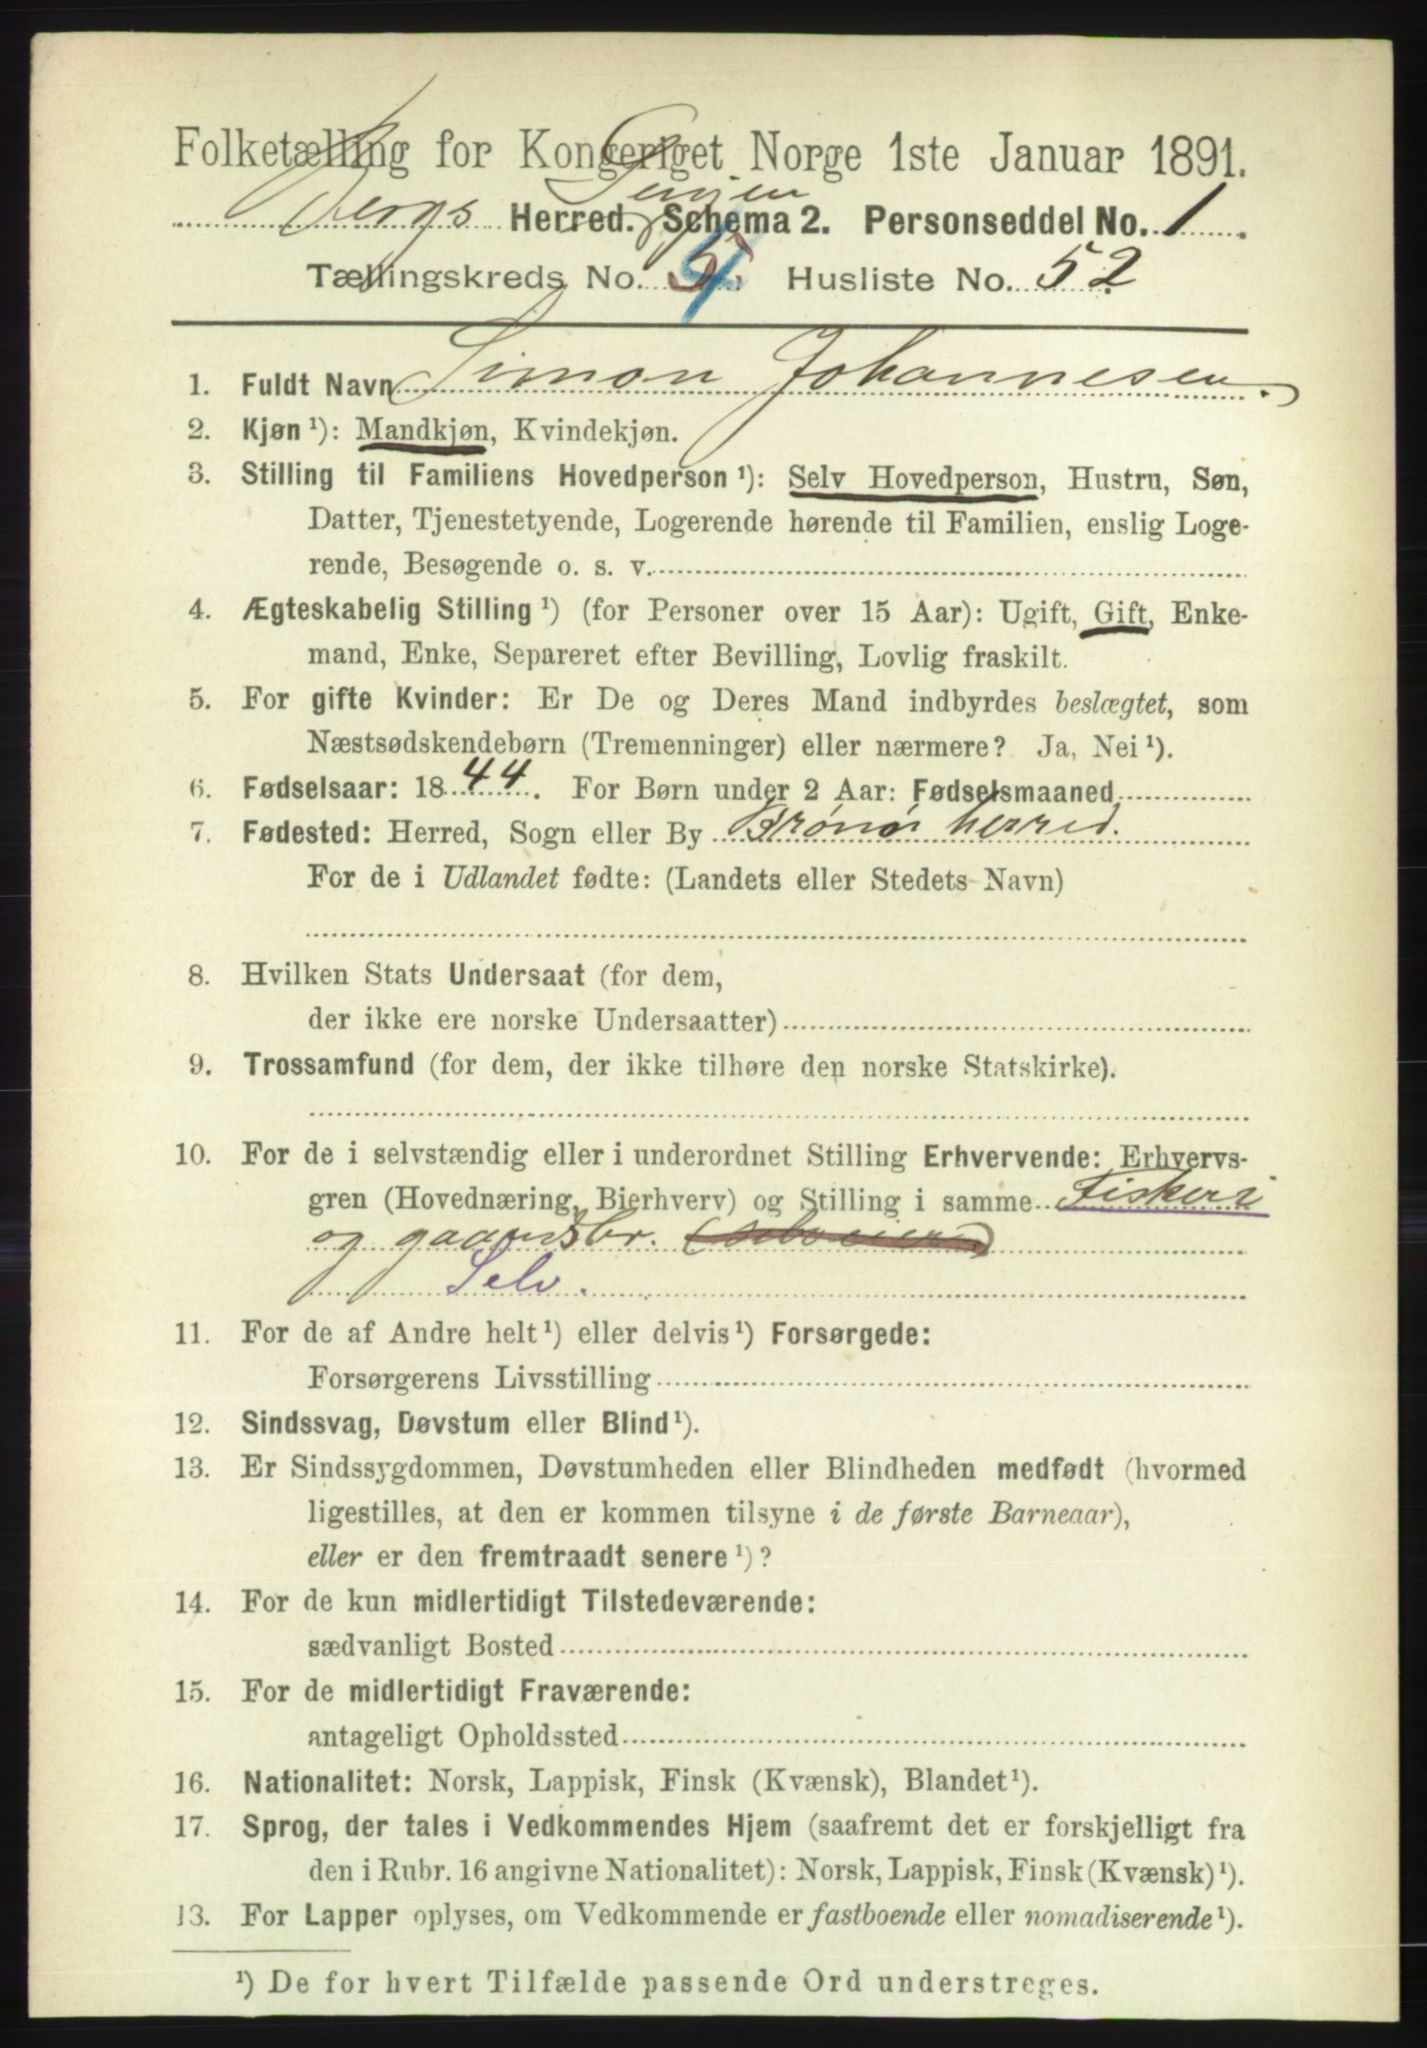 Folketælling for Kongeriget Norge 1ste Januar 1891.
Bergs Herred. Schema 2. Personseddel No. 1
Tællingskreds No. 4 Husliste No. 52
1. Fuldt Navn Simon Johannesen.
2. Kjøn ¹): Mandkjøn, Kvindekjøn.
3. Stilling til Familiens Hovedperson ¹): Selv Hovedperson, Hustru, Søn,
Datter, Tjenestetyende, Logerende hørende til Familien, enslig Loge-
rende, Besøgende o. s. v.
4. Ægteskabelig Stilling ¹) (for Personer over 15 Aar): Ugift, Gift, Enke-
mand, Enke, Separeret efter Bevilling, Lovlig fraskilt.
5. For gifte Kvinder: Er De og Deres Mand indbyrdes beslægtet, som
Næstsødskendebørn (Tremenninger) eller nærmere? Ja, Nei ¹).
6. Fødselsaar: 1844. For Børn under 2 Aar: Fødselsmaaned
7. Fødested: Herred, Sogn eller By Brønø herred.
For de i Udlandet fødte: (Landets eller Stedets Navn)
8. Hvilken Stats Undersaat (for dem,
der ikke ere norske Undersaatter)
9. Trossamfund (for dem, der ikke tilhøre den norske Statskirke).
10. For de i selvstændig eller i underordnet Stilling Erhvervende: Erhvervs-
gren (Hovednæring, Bierhverv) og Stilling i samme Fiskeri
og gaardsbr. (selveier)
Selv.
11. For de af Andre helt ¹) eller delvis ¹) Forsørgede:
Forsørgerens Livsstilling
12. Sindssvag, Døvstum eller Blind ¹).
13. Er Sindssygdommen, Døvstumheden eller Blindheden medfødt (hvormed
ligestilles, at den er kommen tilsyne i de første Barneaar),
eller er den fremtraadt senere ¹)?
14. For de kun midlertidigt Tilstedeværende:
sædvanligt Bosted
15. For de midlertidigt Fraværende:
antageligt Opholdssted
16. Nationalitet: Norsk, Lappisk, Finsk (Kvænsk), Blandet ¹).
17. Sprog, der tales i Vedkommendes Hjem (saafremt det er forskjelligt fra
den i Rubr. 16 angivne Nationalitet): Norsk, Lappisk, Finsk (Kvænsk) ¹).
13. For Lapper oplyses, om Vedkommende er fastboende eller nomadiserende ¹).
¹) De for hvert Tilfælde passende Ord understreges.